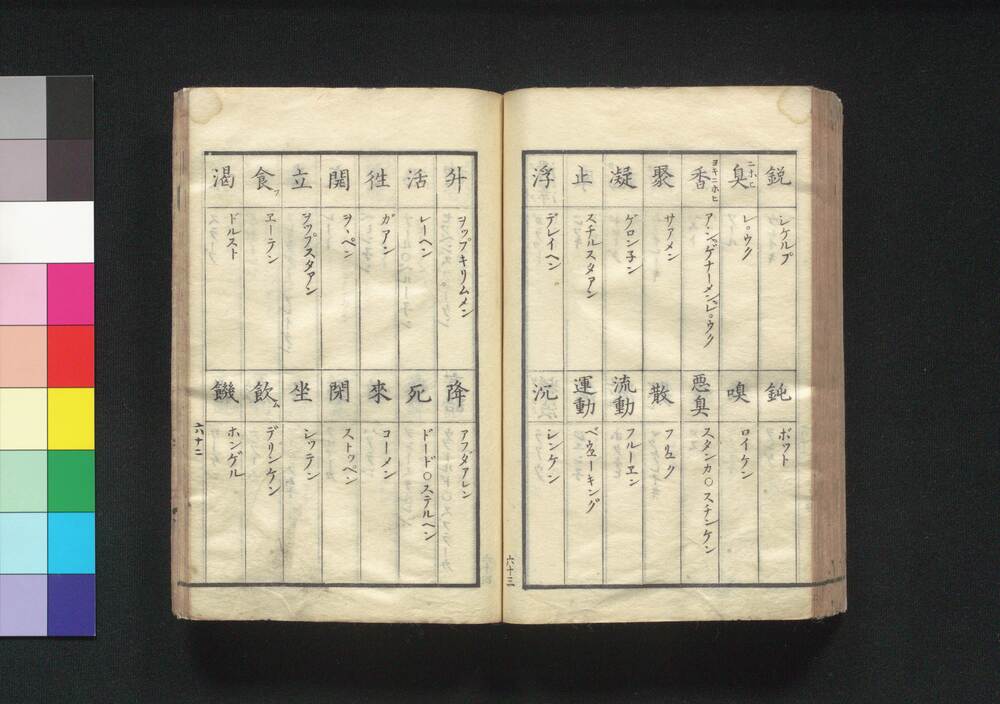 鋭 シケルプ
臭 ニホヒ レ。ウク
香 ヨキニホヒ アンゲナーメンレ。ウク
聚 サアメン
凝 ゲロン子ン
止 スチルスタアン
浮 デレイヘン
鈍 ボット
嗅 ロイケン
悪臭 スタンカ〇スチンケン
散
流動 フルーエン
運動 ベウェーキング
沉 シンケン
六十三
升 ヲップキリムメン
活 レーヘン
徃 ガアン
開 ヲ、ペン
立 ヲップスタアン
食フ ヱーテン
渇 ドルスト
降 アフダアレン
死 ドード〇ステルヘン
來 コーメン
閉 ストッペン
坐 シッテン
飲ム デリンケン
饑 ホンゲル